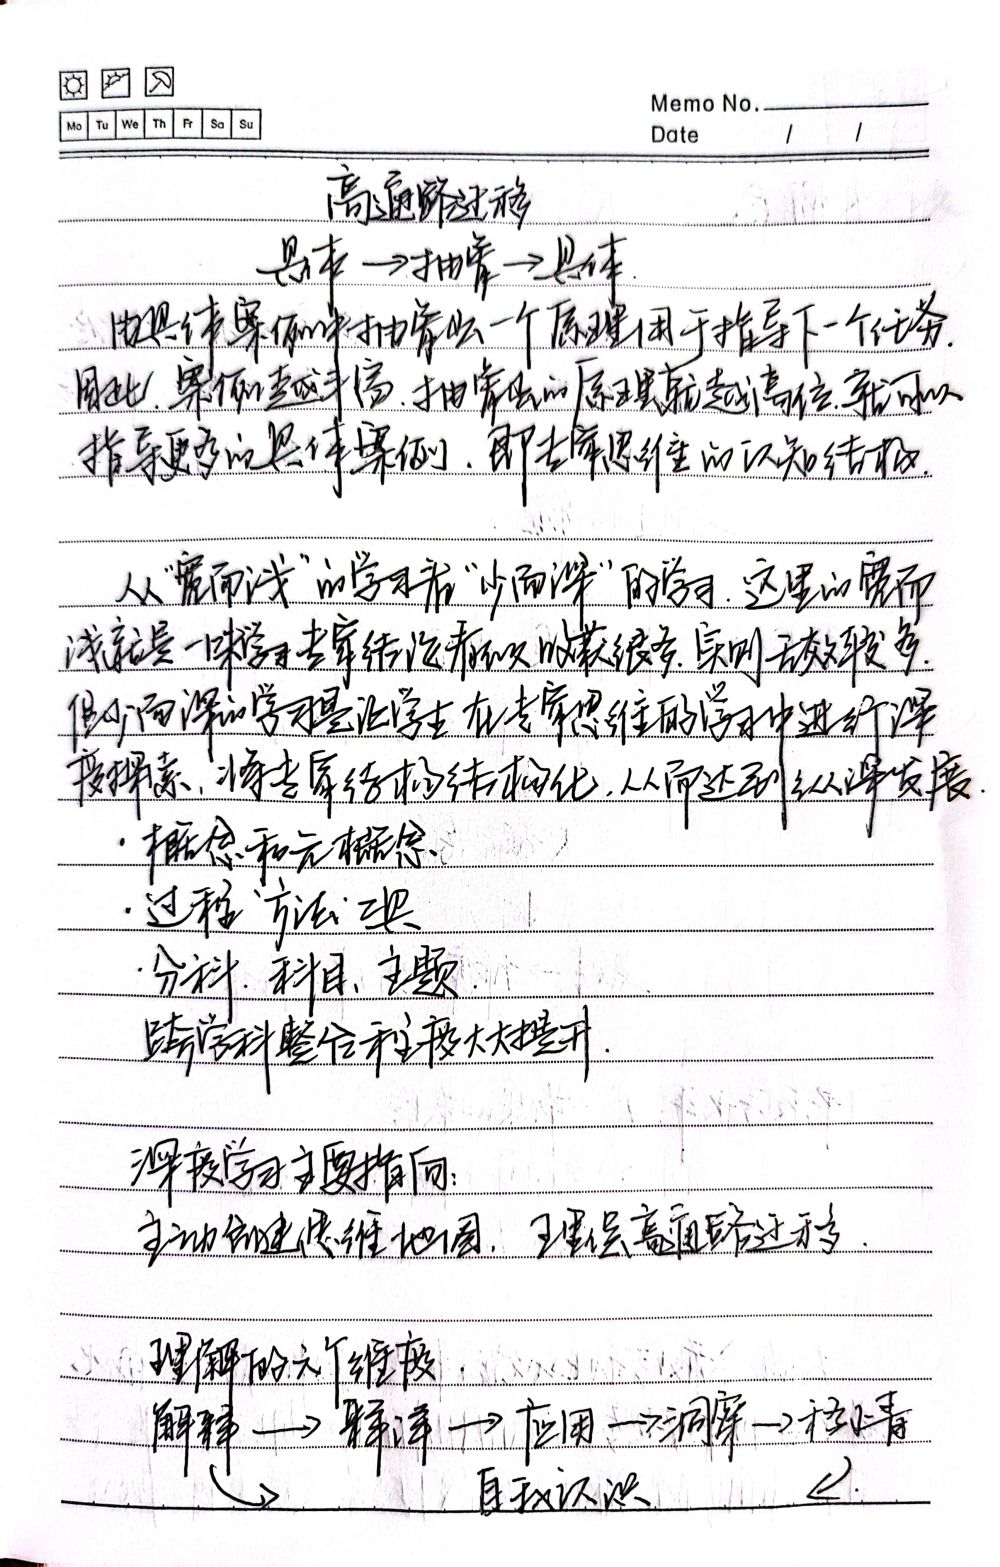 Mo Tu We Th Fr Sa Su
Memo No.
Date / /
高通路迁移
具体→抽象→具体.
由具体案例中抽象出一个原理用于指导下一个任务.
因此,案例越丰富,抽象出的原理就越高位,就可以
指导更多的具体案例,即专家思维的认知结构.
从“宽而浅”的学习 “少而深”的学习.这里的宽而
浅就是一味学习专家结论看似收获很多,实则无效较多.
但少而深的学习是让学生在专家思维的学习中进行深
度探索,将专家结构结构化,从而达到纵深发展.
·概念和元概念、
·过程、方法、工具
·分科、科目、主题.
跨学科整合程度大大提升.
深度学习主要指向:
主动创建思维地图, 理解高通路迁移.
理解的六个维度.
解释 → 释译 → 应用 → 洞察 →
自我认识